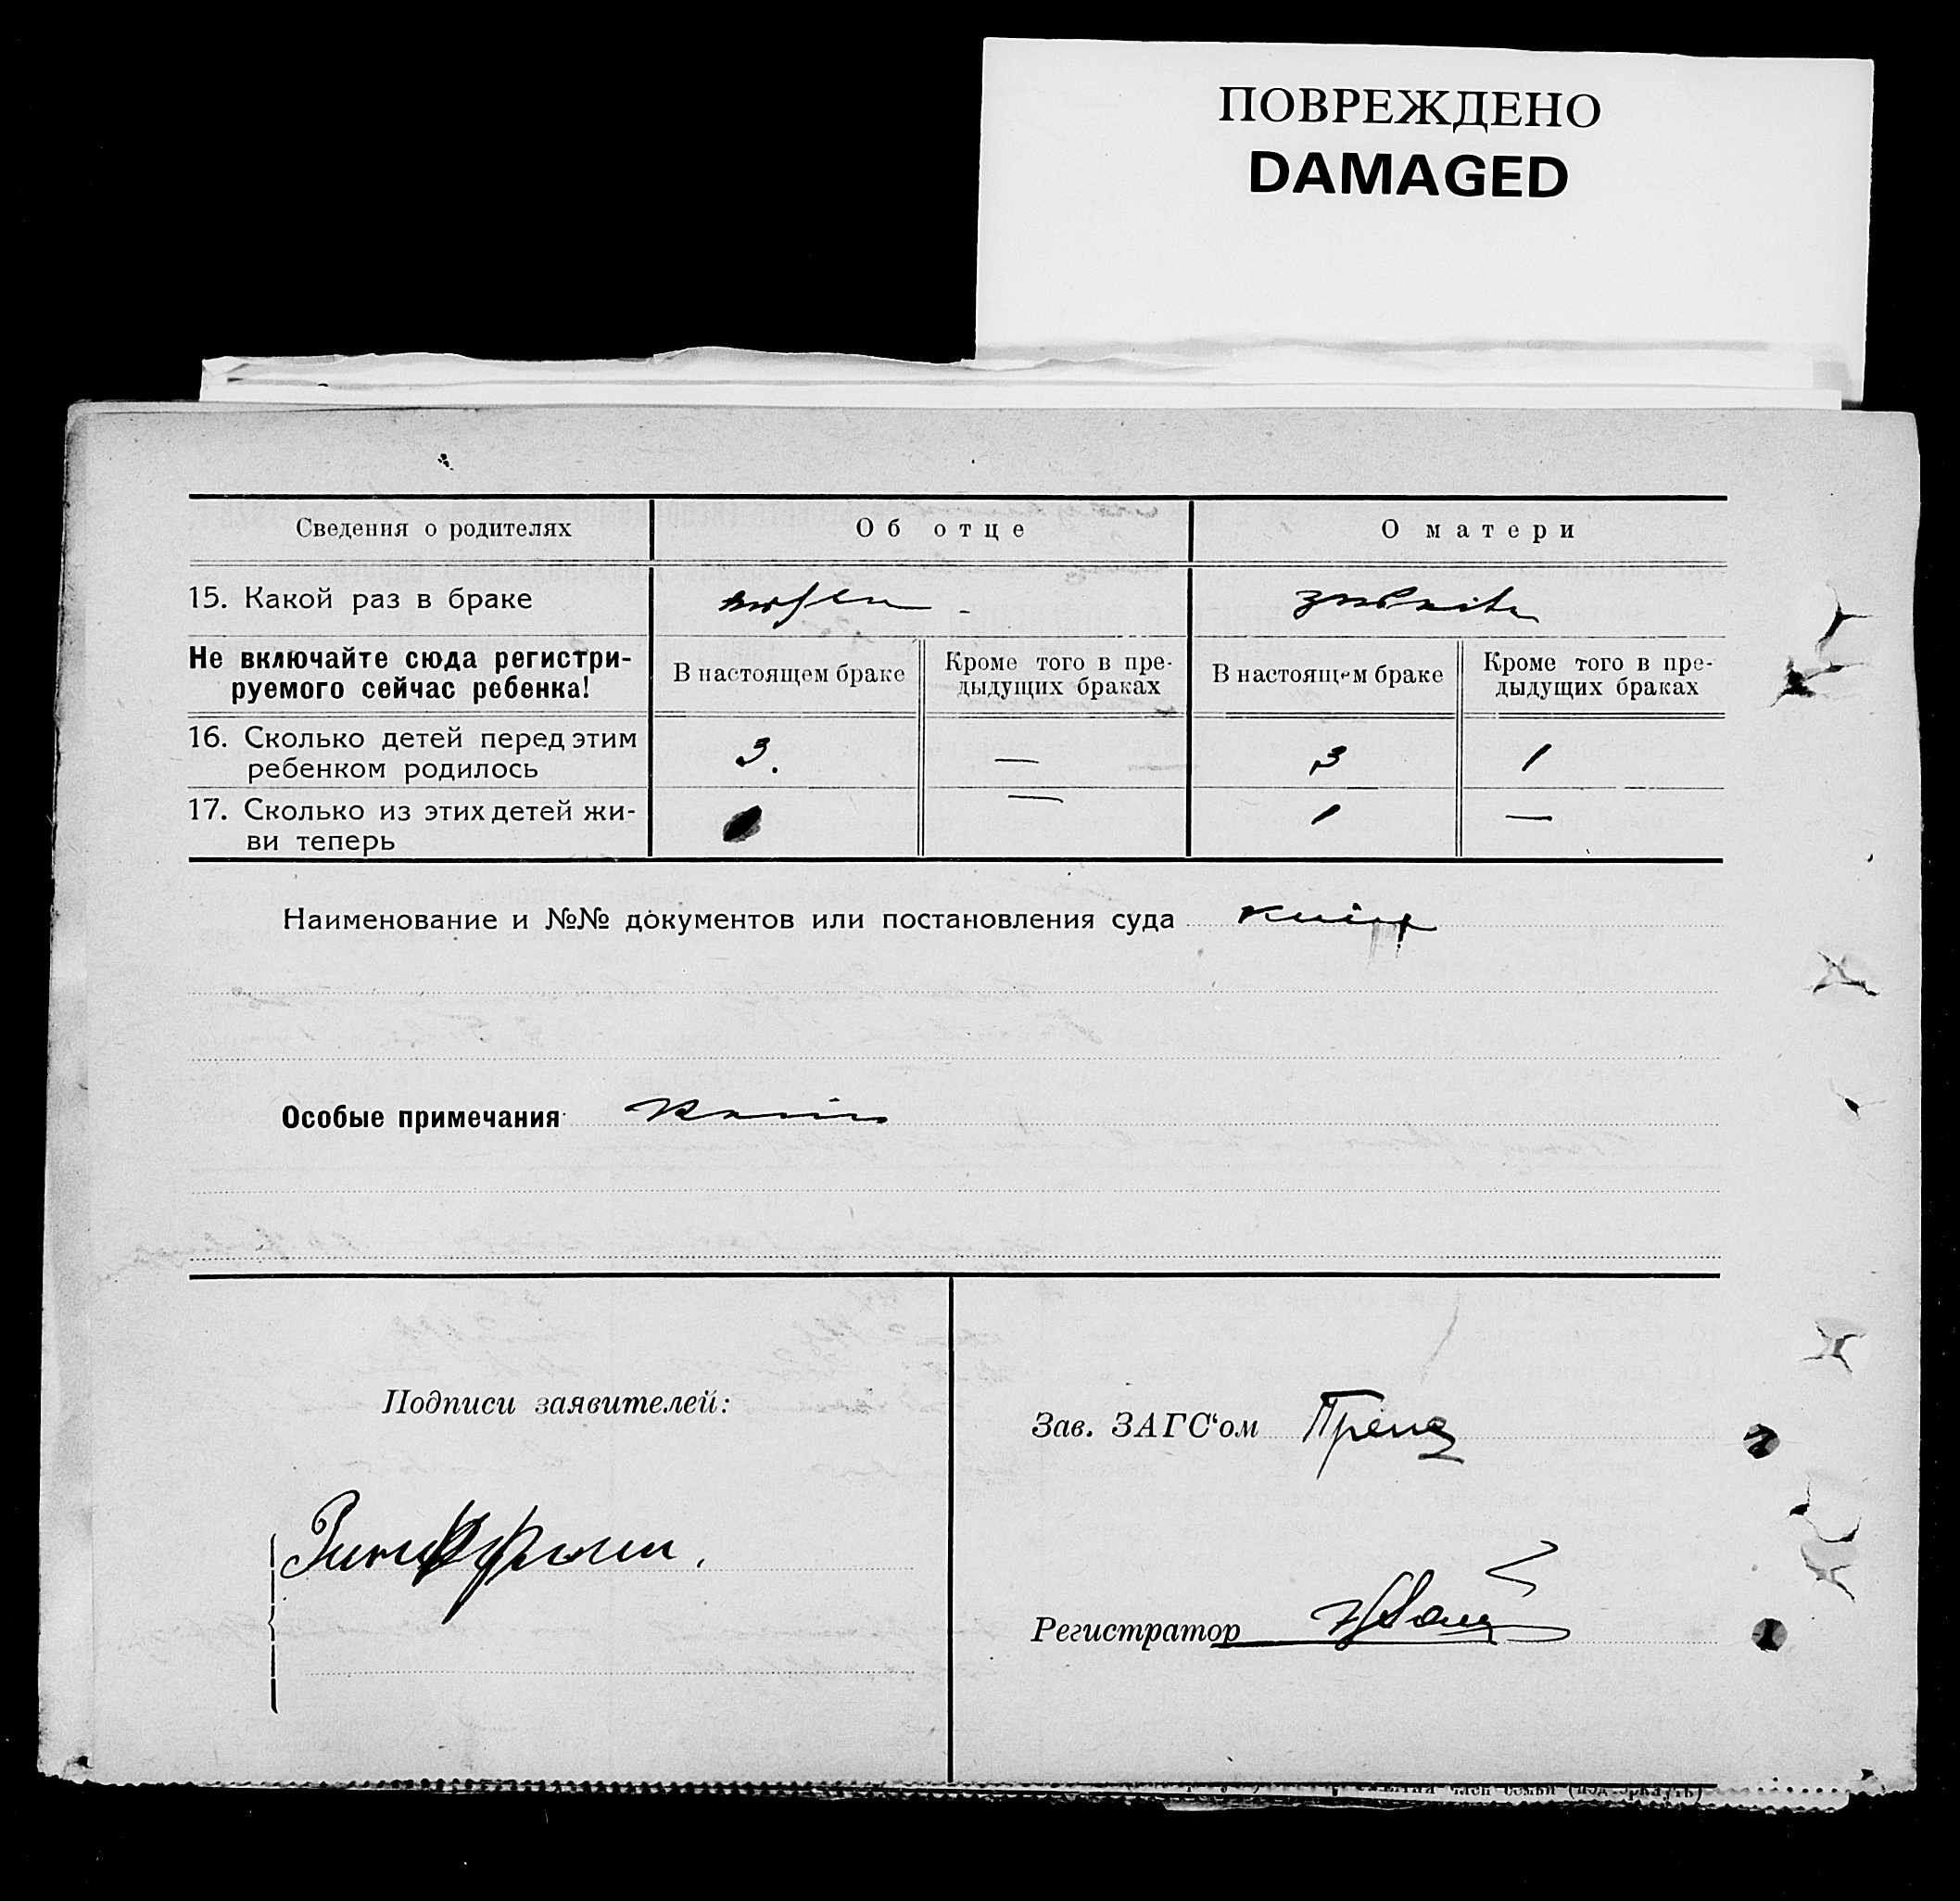 ПОВРЕЖДЕНО
DAMAGED
Сведения о родителях Об отце О матери
15. Какой раз в браке
Не включайте сюда регистри-
руемого сейчас ребенка!
В настоящем браке
Кроме того в пре-
дыдущих браках
В настоящем браке
Кроме того в пре-
дыдущих браках
16. Сколько детей перед этим
ребенком родилось
3. — 3 1
17. Сколько из этих детей жи-
ви теперь
— 1 —
Наименование и №№ документов или постановления суда
Особые примечания
Подписи заявителей:
Зав. ЗАГС'ом
Регистратор
член семьи (подчеркнуть)